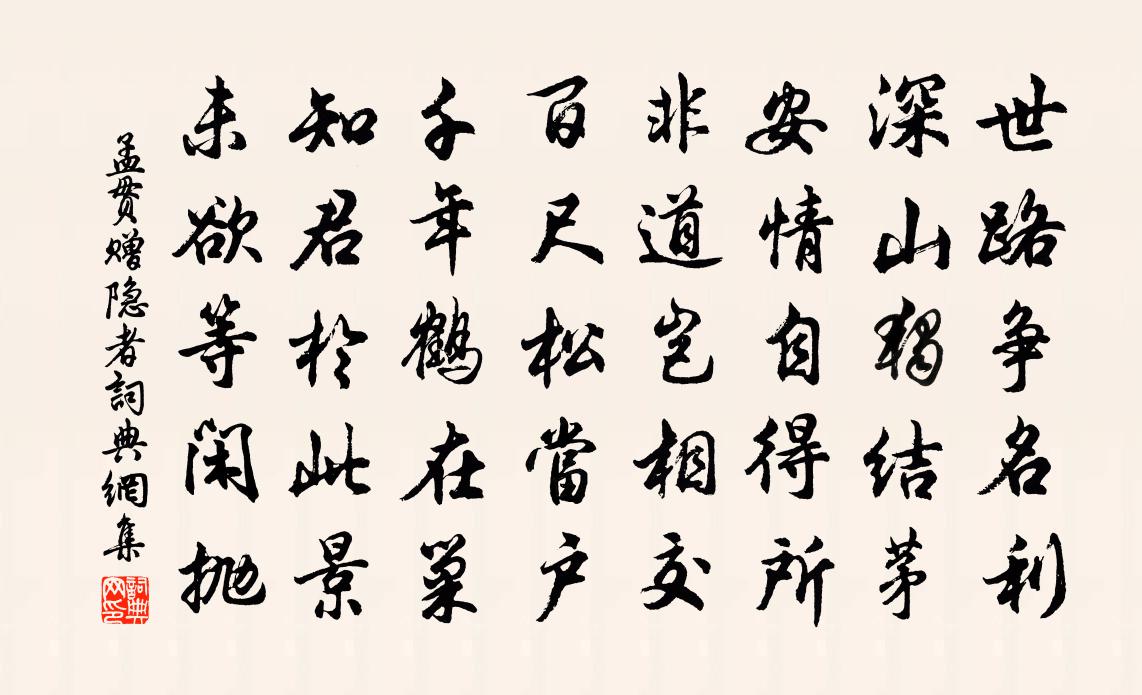 世路争名利
深山獨结茅
安情自得所
非道岂相交
百尺松當户
千年鶴在巢
知君於此景
未欲等闲抛
孟贯赠隐者詞典網集
詞典网印